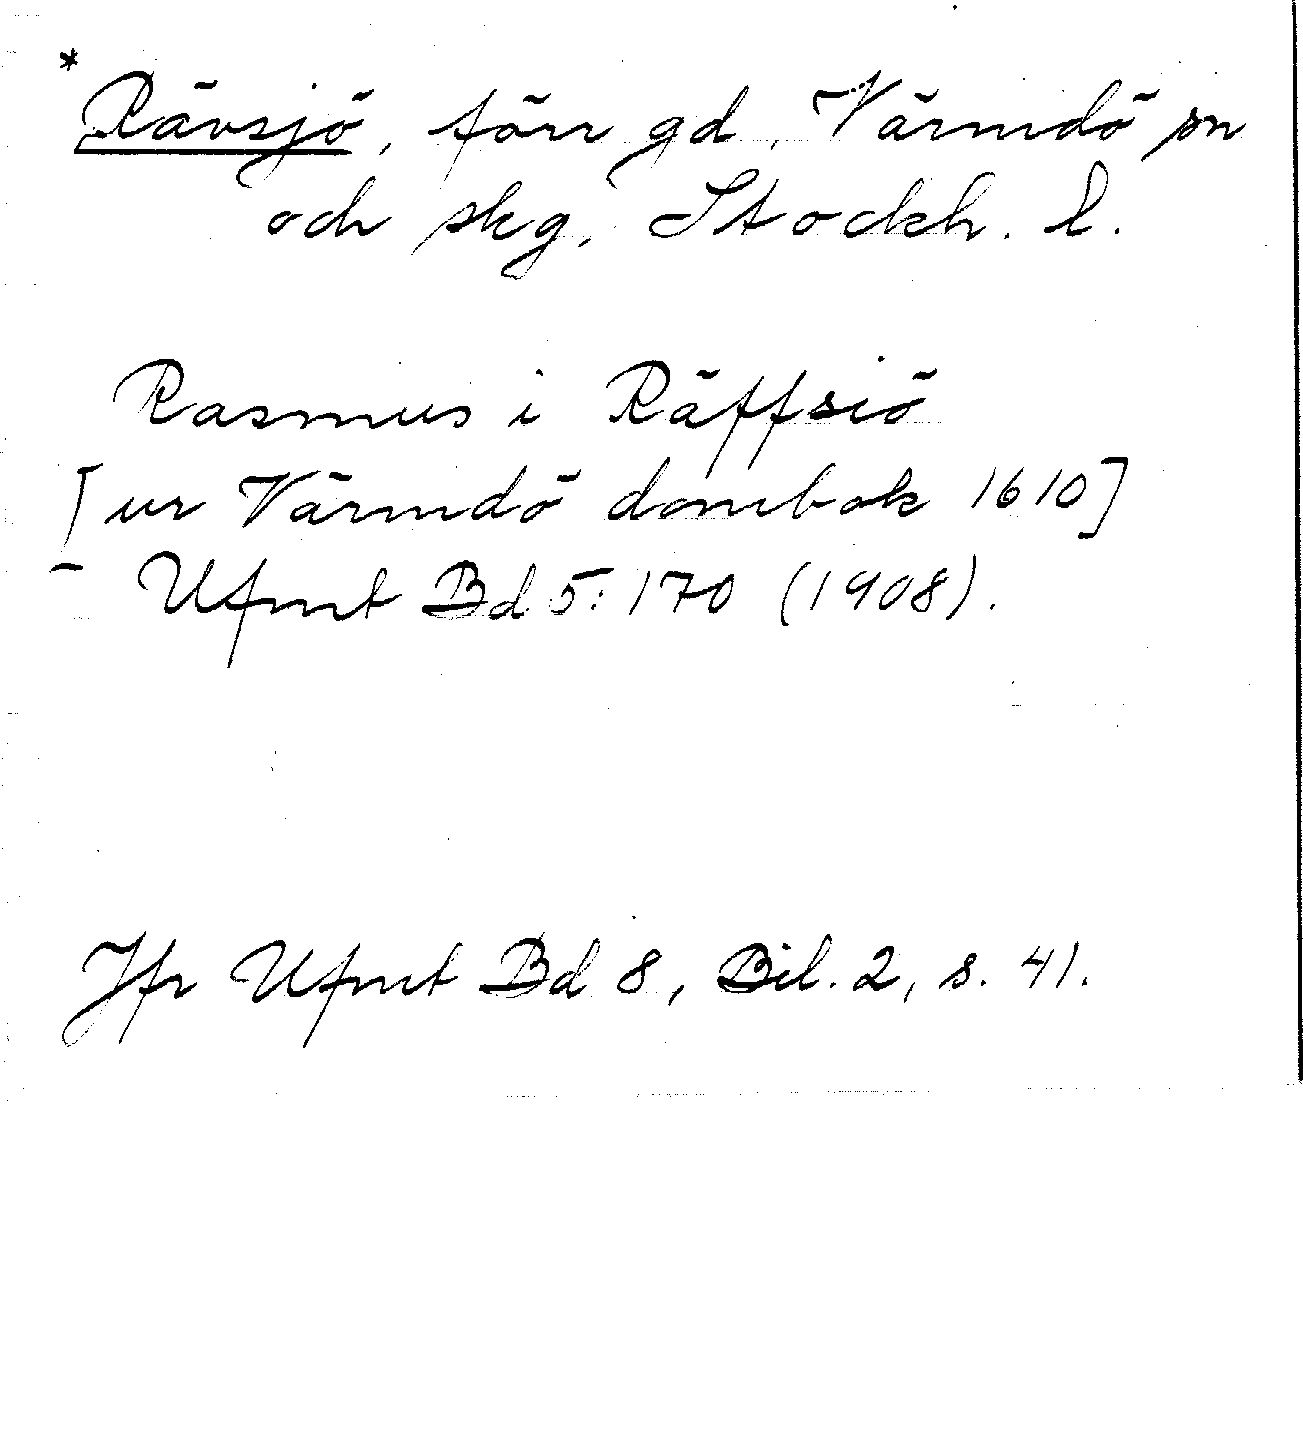 * Rävsjö, förr gd. Värmdö sn
och skg, Stockh. l.
Rasmus i Räffsiö
[ur Värmdö dombok 1610]
– Ufmt Bd 5: 170 (1908).
Jfr Ufmt Bd 8, Bil. 2, s. 41.